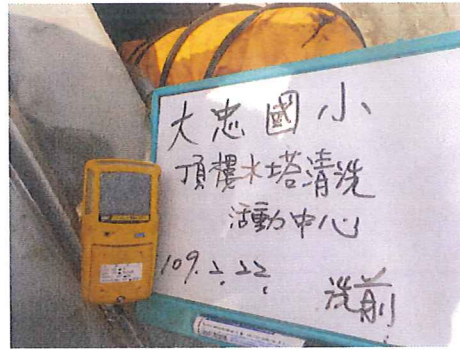 大忠國小
頂樓水塔清洗
活動中心
109.2.22.
洗前